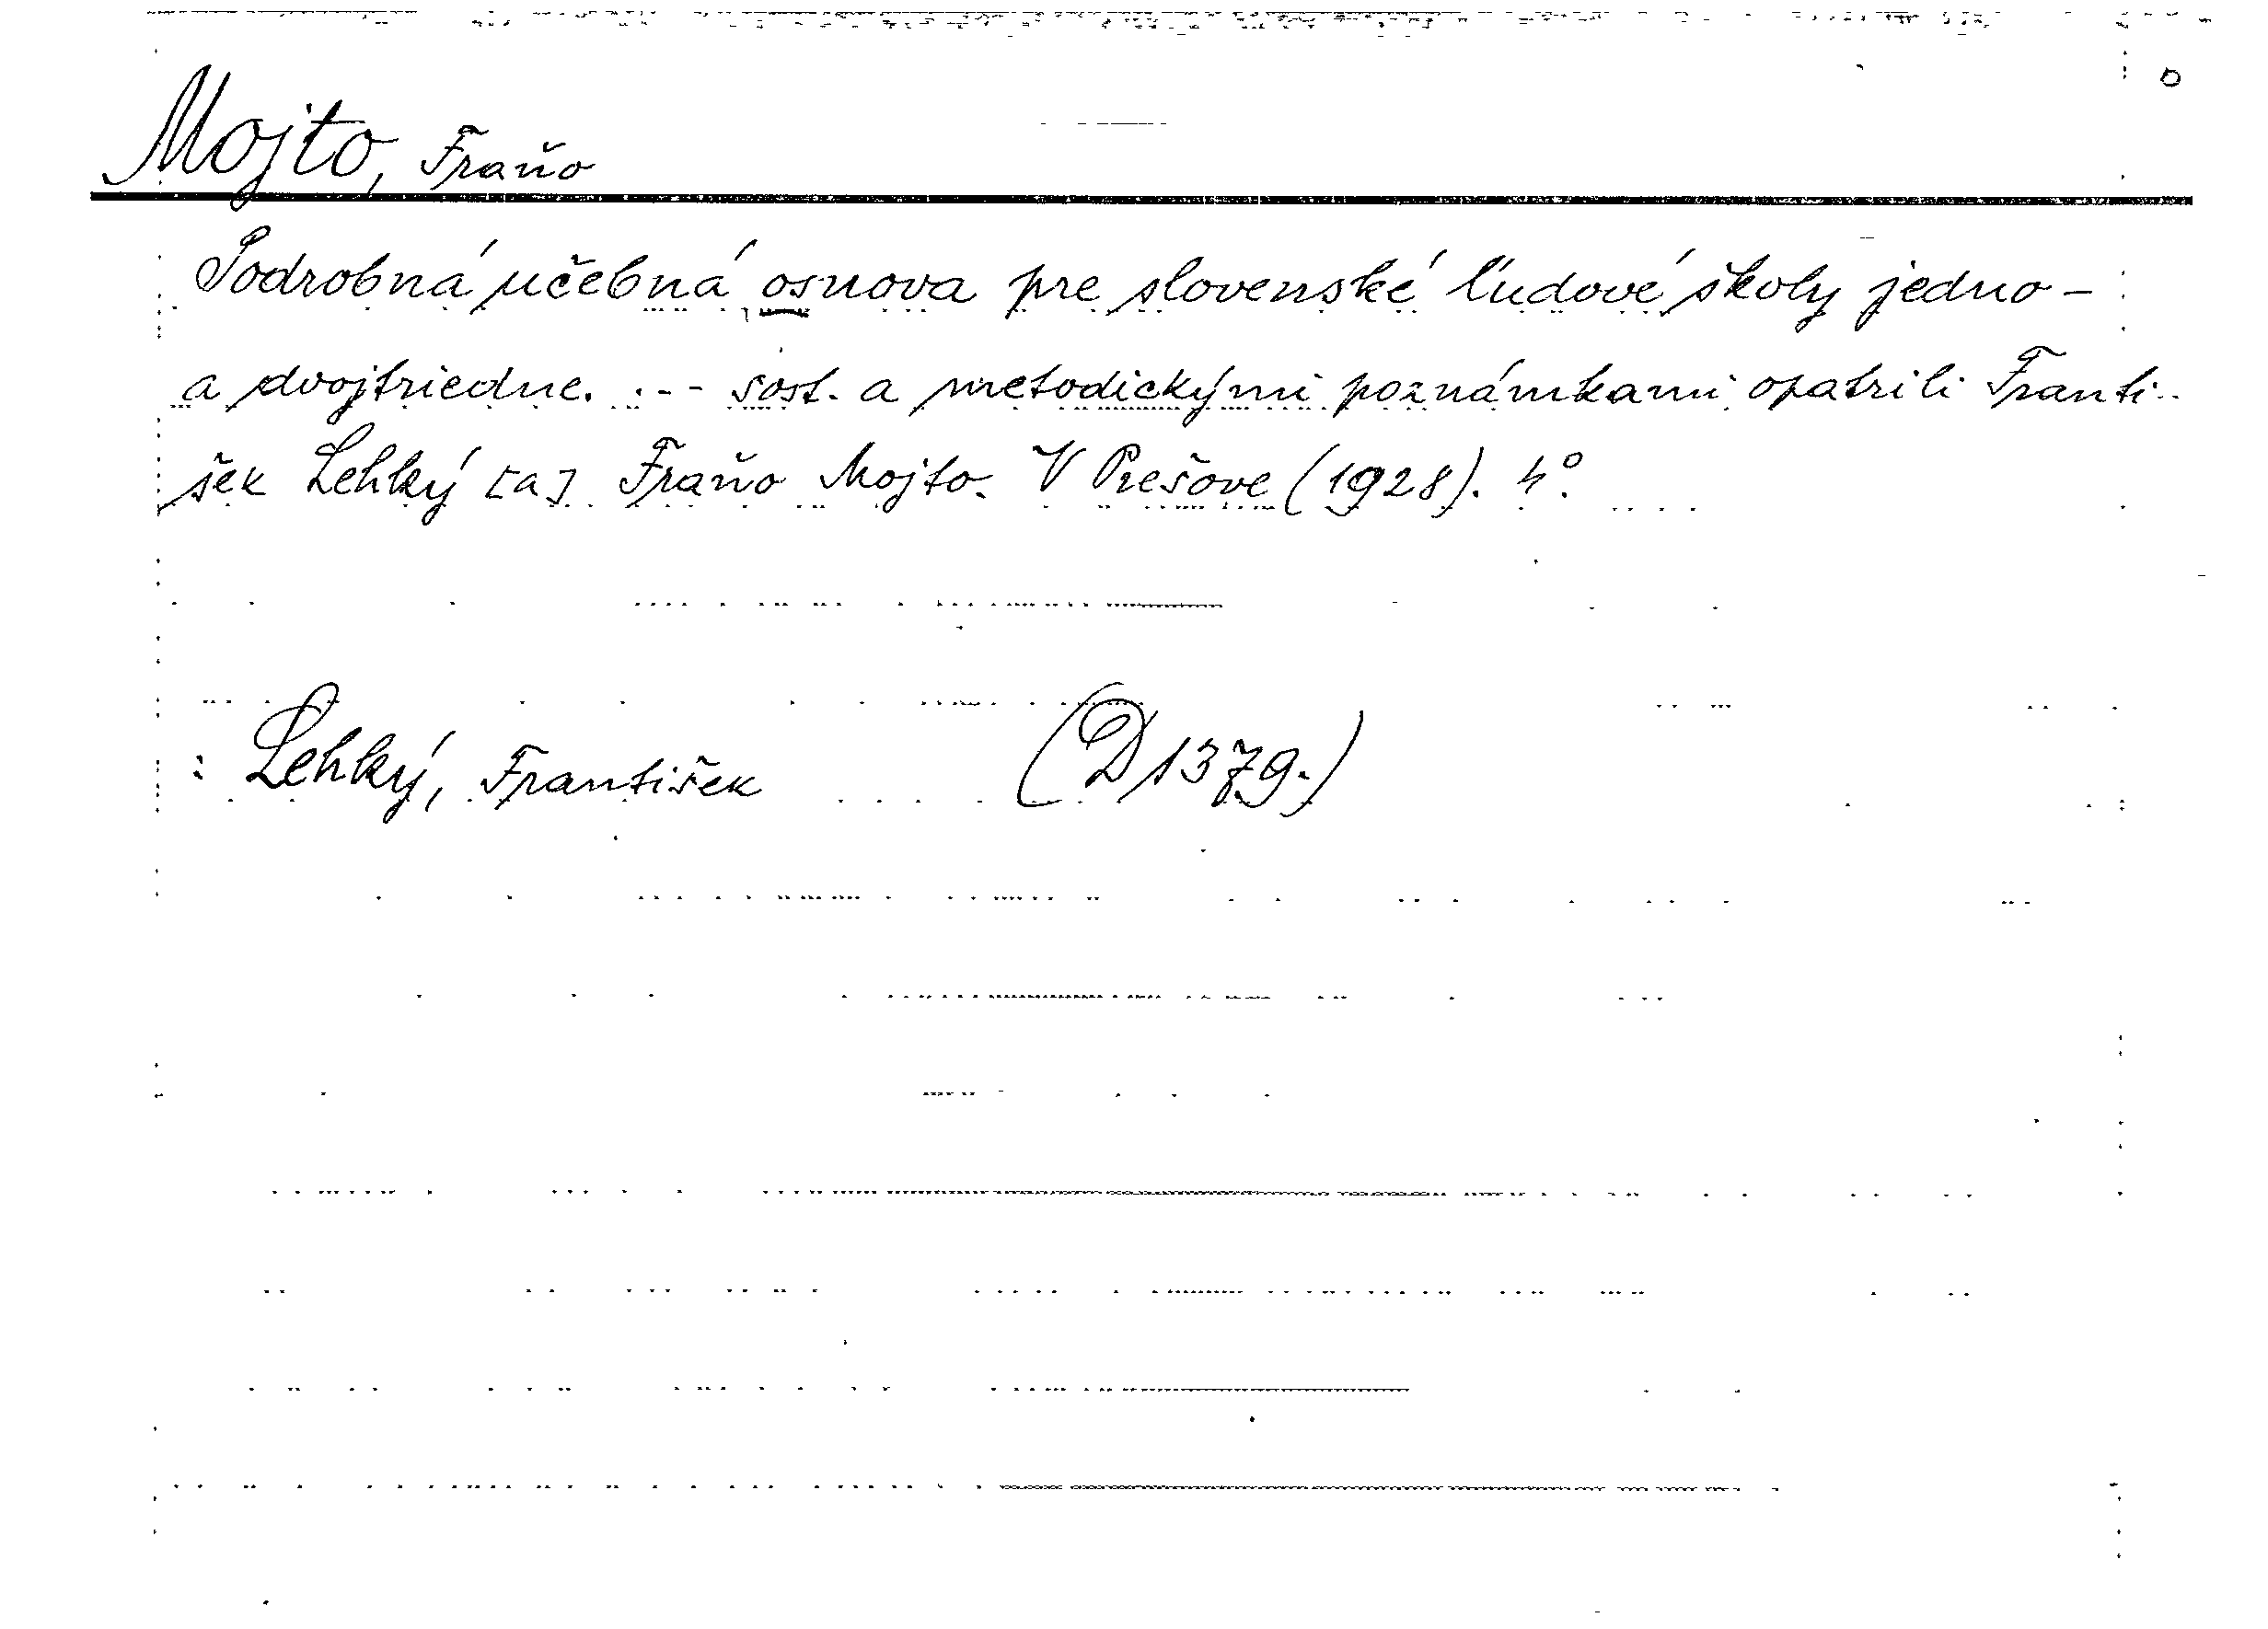 Mojto, Fraňo
Podrobná učebná osnova pre slovenské ľudové školy jedno-
a dvojtriedne. ... sost. a metodickými poznámkami opatrili Franti-
šek Lehký [a] Fraňo Mojto. V Prešove (1928). 4°.
: Lehký, František (D 1379.)